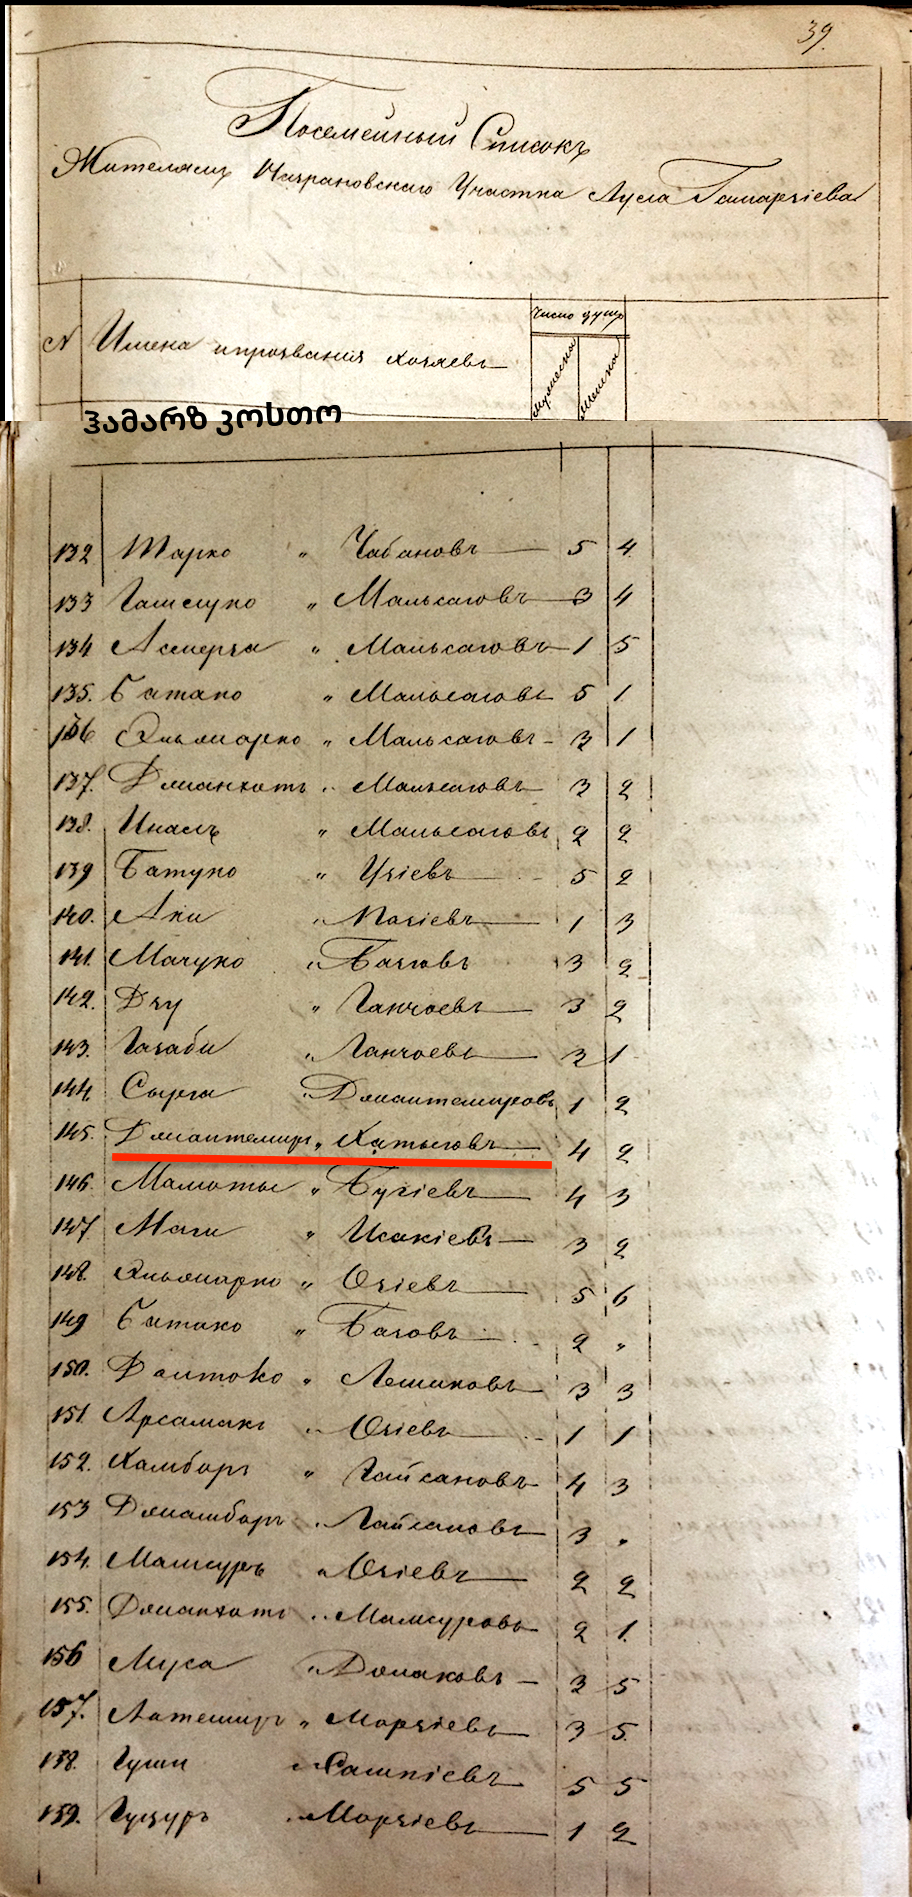 39.
Посемейный Списокъ
Жителямъ Назрановскаго Участка Аула Гамарзіева
N Имена и прозвания хозяевъ
Число душъ
мужеска
женска
ჰამარზ კოსთო
132 Шарко " Чабановъ 5 4
133 Гайсуко " Мальсаговъ 3 4
134 Асмерза " Мальсаговъ 1 5
135. Батако " Мальсаговъ 5 1
136 Эльмарко " Мальсаговъ 3 1
137. Джанхотъ " Мальсаговъ 3 2
138. Иналъ " Мальсаговъ 2 2
139 Батуко " Узіевъ 5 2
140. Аки " 1 3
141. Мачуко " Базовъ 3 2
142. Дзу " Ганчоевъ 3 2
143. Газаби " Ганчоевъ 3 1
144. Сырга " Джантемировъ 1 2
145. Джантемиръ " Хатыговъ 4 2
146. " Бузіевъ 4 3
147 " Исакіевъ 3 2
148. Эльмарко " Озіевъ 5 6
149 Батако " Базовъ 2 "
150. Долтоко " 3 3
151. Арсамакъ " Озіевъ 1 1
152. Камборъ " Гайсановъ 4 3
153 Джамборъ " Гайсановъ 3 "
154. Мансуръ " Озіевъ 2 2
155. Джанхотъ " Мансуровъ 2 1.
156 Муса " 3 5
157. Латемиръ " Морзіевъ 3 5.
158. Гуши " 5 5
159. " Морзіевъ 1 2